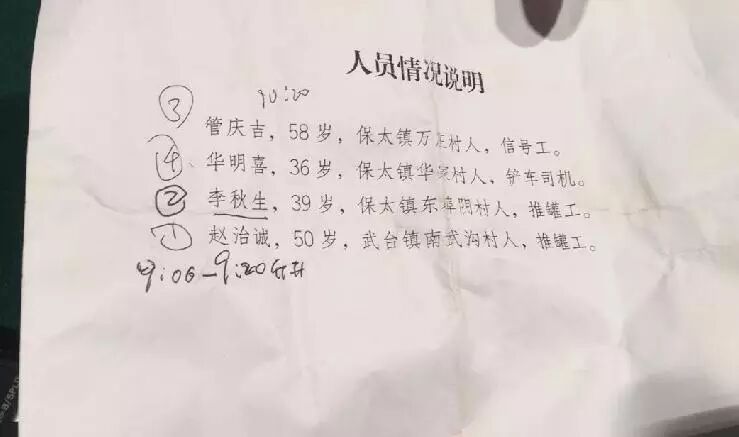 人员情况说明
10:20
③ 管庆吉，58岁，保太镇万庄村人，信号工。
④ 华明喜，36岁，保太镇华家村人，铲车司机。
② 李秋生，39岁，保太镇东阜阴村人，推罐工。
① 赵治诚，50岁，武台镇南武沟村人，推罐工。
9:06-9:20